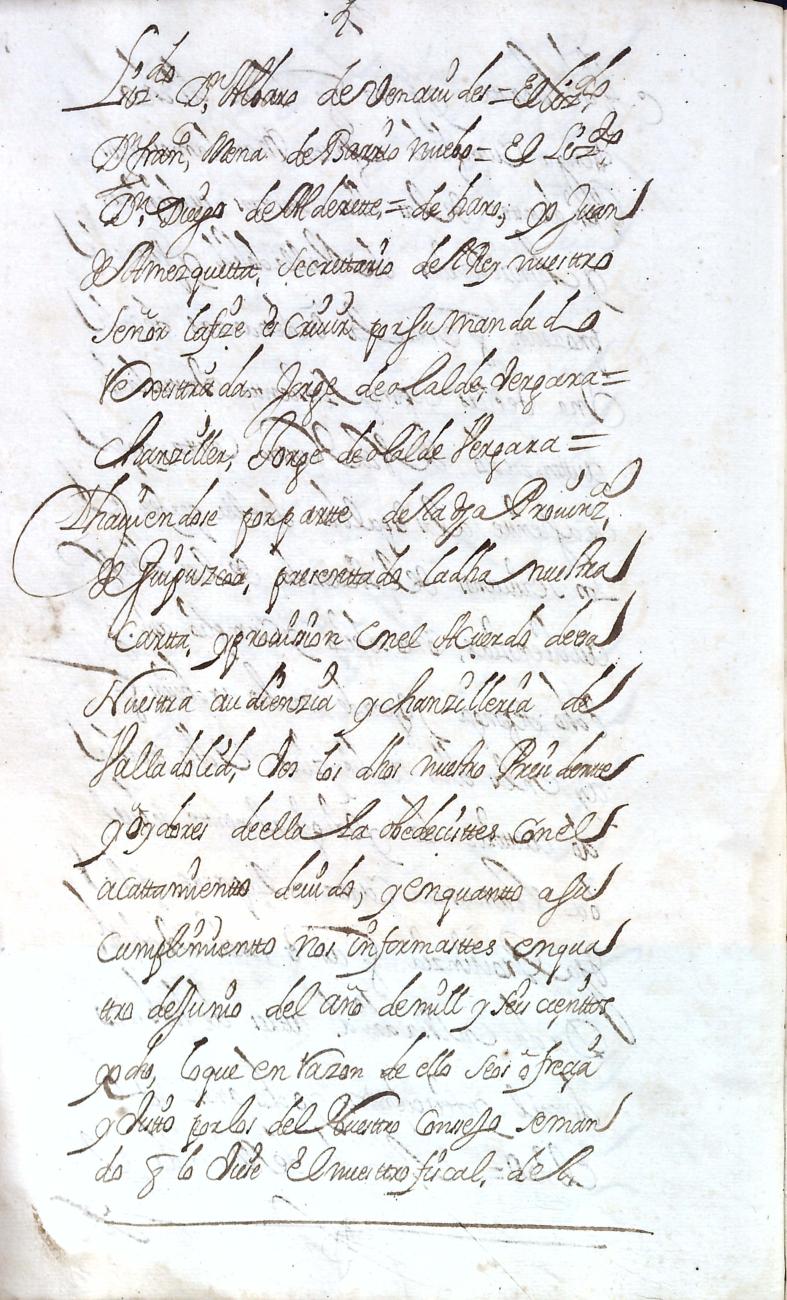 Lizdo Dn Albaro de Venaui des = El Lizdo
Dn franco Mena de Barrio nuebo = El Lizdo
Dn Diego de Alderette, = de haro, yo Juan
de Amezquetta, Secrettario del Rey nuesttro
Señor la fize es Criuir por su manda do
rexisttrada Jorge de olalde Vergara =
Chanziller, Jorge de olalde Vergara =
Y hauiendose por partte de la dha Prouinza
de Guipuzcoa, presenttado la dha nuestra
Cartta, y prouission en el Acuerdo de esa
Nuesttra audienzia y chanzilleria de
Valladolid, Vos los dhos nuestro Presidentte
y oydores de ella la obedecisttes con el
acattamientto deuido, y en quantto a su
Cumplimientto nos informasttes en qua
ttro de Junio del año de mill y seis cienttos
y ocho, lo que en razon de ello se os ofrecia
y Visto por los del Nuestro Conssejo se man
do q lo Viese El nuesttro fiscal, de la